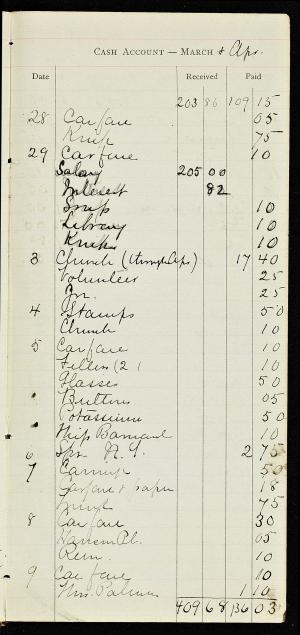 CASH ACCOUNT — MARCH & Apr.
Date Received Paid
203 86 109 15
28 Carfare 05
75
29 Carfare 10
Salary 205 00
Interest 82
Soup 10
Library 10
10
3 Church (through Apr) 17 40
Volunteer 25
Jn. 25
4 Stamps 50
Church 10
5 Carfare 10
10
Glasses 50
Buttons 05
Potassium 50
Miss Barnard 10
6 N. Y. 2 75
7 50
Carfare & paper 18
75
8 Carfare 30
05
Rem. 10
9 Carfare 10
Mrs. Palmer 1 10
409 68 136 03